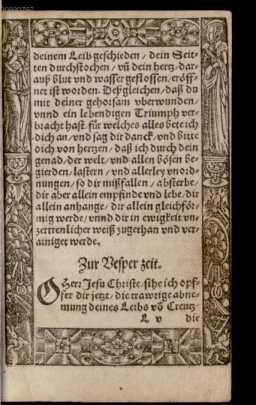 deinem Leib geschieden / dein Seit-
ten durchstochen / vñ dein hertz / dar-
auß blut vnd wasser geflossen / eröff-
net ist worden. Deßgleichen / daß du
mit deiner gehorsam vberwunden /
vnnd ein lebendigen Triumph ver-
bracht hast: für welches alles bete ich
dich an / vnd sag dir danck / vnd bitte
dich von hertzen / daß ich durch dein
genad / der welt / vnd allen bösen be-
gierden / lastern / vnd allerley vnord-
nungen / so dir mißfallen / absterbe /
dir aber allein empfinde vnd lebe / dir
allein anhange / dir allein gleichför-
mig werde / vnnd dir in ewigkeit vn-
zertrenlicher weiß zugethan vnd ver-
ainiget werde.
Zur Vesper zeit.
O Herr Jesu Christe / sihe ich opf-
fer dir jetzt / die trawrige abne-
mung deines Leibs võ Creutz
L v die